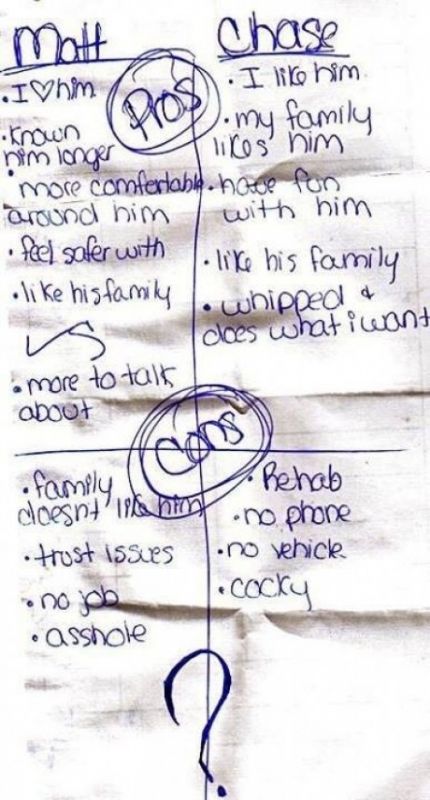 Matt
Pros
• I ♡ him
• known
him longer
• more comfertable
around him
• feel safer with
• like his family
VS
• more to talk
about
Chase
• I like him
• my family
likes him
• have fun
with him
• like his family
• whipped &
does what i want
Cons
• family
doesnt like him
• trust issues
• no job
• asshole
• Rehab
• no phone
• no vehicle
• cocky
?